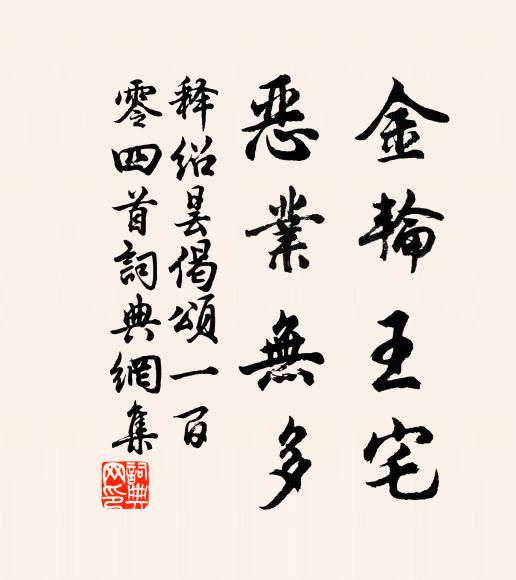 金輪王宅
惡業無多
释绍昙偈頌一百
零四首詞典網集
詞典网印